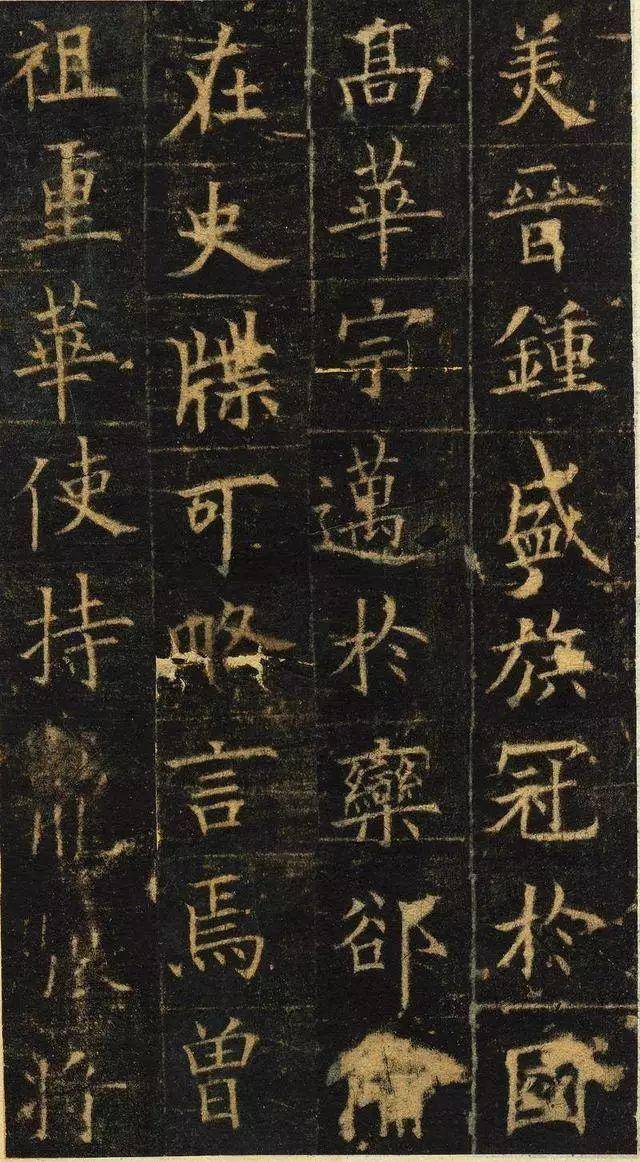 羙晉鍾盛族冠於國
髙華宗邁於欒郤
在史牒可略言焉曾
祖重華使持將